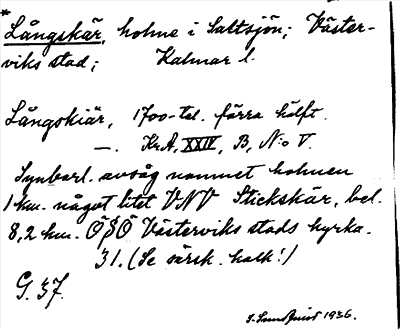 *
Långskär, holme i Saltsjön; Väster-
viks stad; Kalmar l.
Långskiär, 1700-tal. förra hälft.
—. Kr.A, XXIV, B, N:o V.
Synbarl. avsåg namnet holmen
1 km. något litet VNV Stickskär, bel.
8,2 km. ÖSÖ Västerviks stads kyrka.
31. (Se särsk. kalk!)
G. 37.
1936.